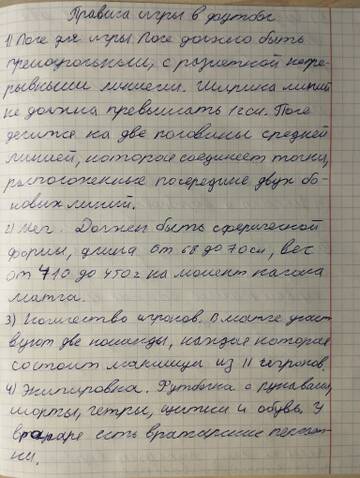 Правила игры в футбол
1) Поле для игры. Поле должно быть
прямоугольным, с разметкой непре-
рывными линиями. Ширина линий
не должна превышать 12 см. Поле
делится на две половины средней
линией, которая соединяет точки,
расположенные посередине двух бо-
ковых линий.
2) Мяч. Должен быть сферической
формы, длина от 68 до 70 см, вес
от 410 до 450 г на момент начала
матча.
3) Количество игроков. В матче участ
вуют две команды, каждая которая
состоит максимум из 11 игроков.
4) Экипировка. Футболка с рукавами,
шорты, гетры, щитки и обувь. У
вратаря есть вратарские перчат-
ки.